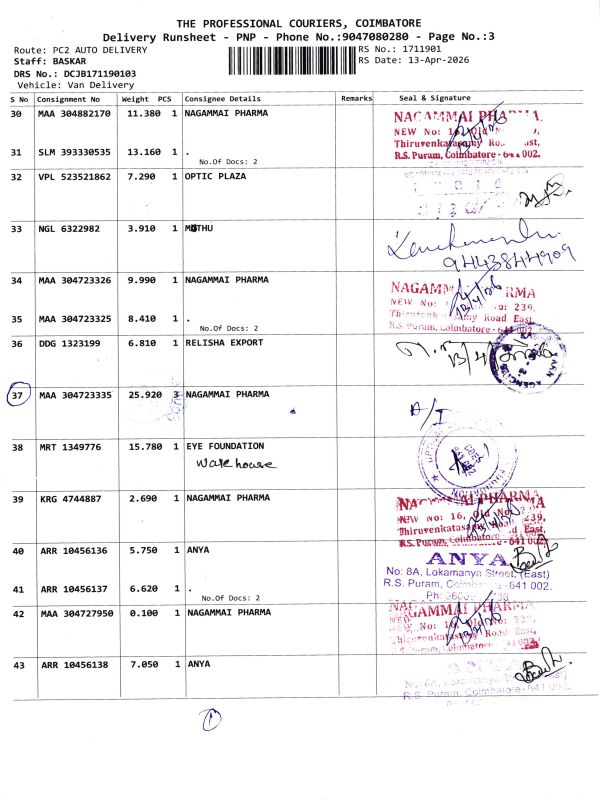 THE PROFESSIONAL COURIERS, COIMBATORE
Delivery Runsheet - PNP - Phone No.:9047080280 - Page No.:3
Route: PC2 AUTO DELIVERY
RS No.: 1711901
Staff: BASKAR
RS Date: 13-Apr-2026
DRS No.: DCJB171190103
Vehicle: Van Delivery
S No Consignment No Weight PCS Consignee Details Remarks Seal & Signature
30 MAA 304882170 11.380 1 NAGAMMAI PHARMA
NAGAMMAI PHARMA,
NEW No: 16, Old
Thiruvenkatasamy
31 SLM 393330535 13.160 1 .
R.S. Puram, Coimbatore - 641 002.
No.Of Docs: 2
32 VPL 523521862 7.290 1 OPTIC PLAZA
33 NGL 6322982 3.910 1 MUTHU
9443844909
34 MAA 304723326 9.990 1 NAGAMMAI PHARMA
NAGAMM RMA
NEW No: 239,
35 MAA 304723325 8.410 1 .
Road East,
R.S. Puram, Coimbatore - 641 002.
No.Of Docs: 2
36 DDG 1323199 6.810 1 RELISHA EXPORT
13/4/
37 MAA 304723335 25.920 3 NAGAMMAI PHARMA
D/I
38 MRT 1349776 15.780 1 EYE FOUNDATION
Ware house
39 KRG 4744887 2.690 1 NAGAMMAI PHARMA
NAGAMMAI PHARMA
NEW No: 16, Old No: 239,
Thiruvenkatasamy Road East,
R.S. Puram, Coimbatore - 641 002.
40 ARR 10456136 5.750 1 ANYA
ANYA
No: 8A, Lokamanya Street, (East)
41 ARR 10456137 6.620 1 .
R.S. Puram, Coimbatore - 641 002.
No.Of Docs: 2
Ph:
42 MAA 304727950 0.100 1 NAGAMMAI PHARMA
NAGAMMAI PHARMA
Thiruvenkatasamy Road East,
43 ARR 10456138 7.050 1 ANYA
ANYA
R.S. Puram, Coimbatore - 641 002.
1